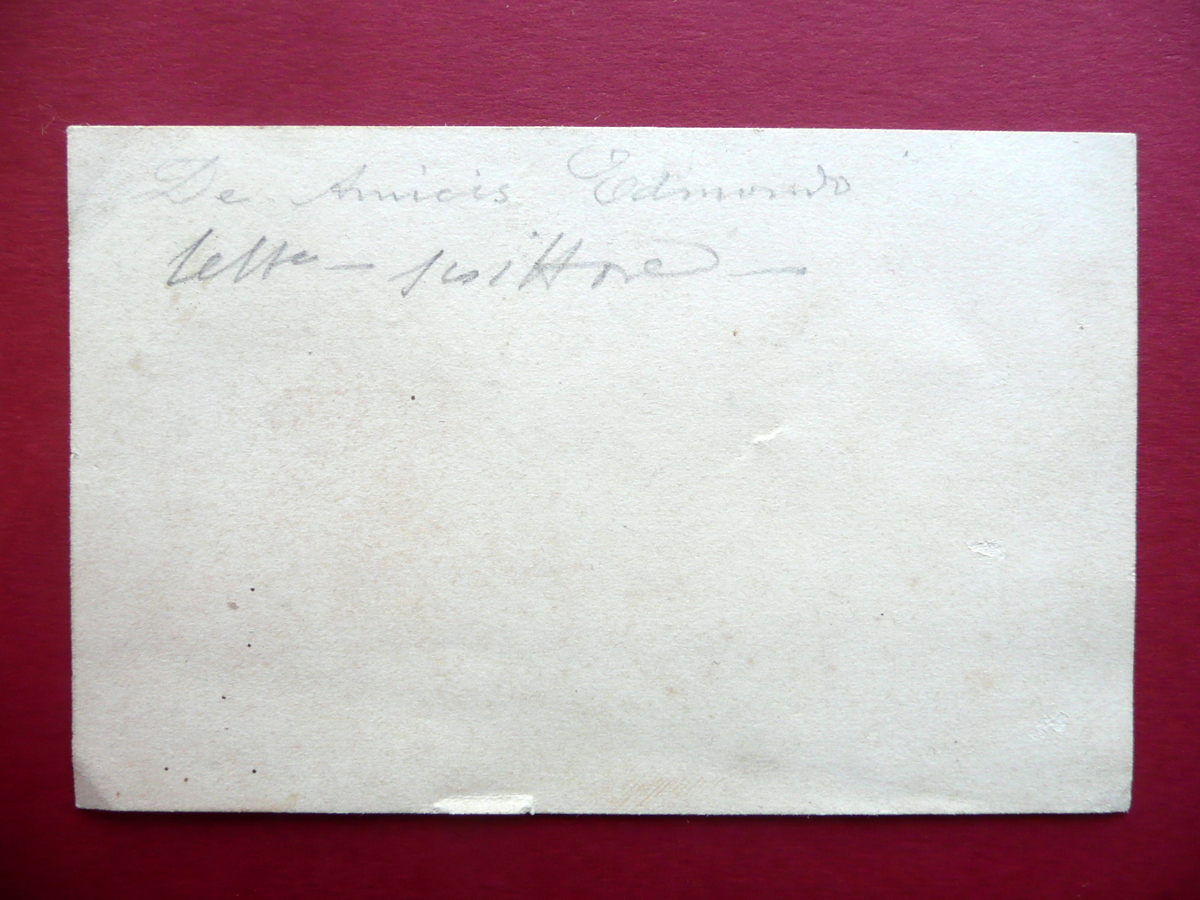 De Amicis Edmondo
lett.ra — scrittore —